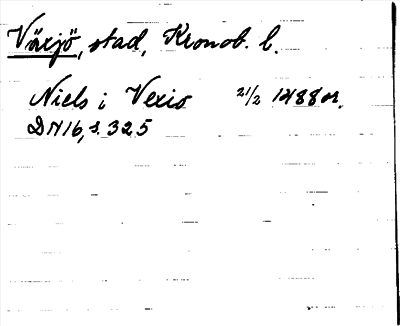 Växjö, stad, Kronob. l.
Niels i Vexio 21/2 1488 or.
DN 16, s. 325